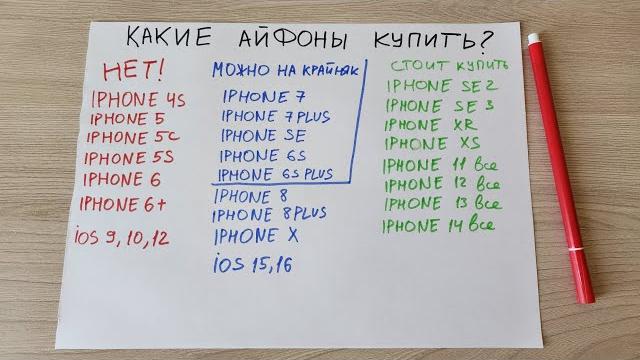 КАКИЕ АЙФОНЫ КУПИТЬ?
НЕТ!
IPHONE 4S
IPHONE 5
IPHONE 5C
IPHONE 5S
IPHONE 6
IPHONE 6+
iOS 9,10,12
МОЖНО НА КРАЙНЯК
IPHONE 7
IPHONE 7PLUS
IPHONE SE
IPHONE 6S
IPHONE 6S PLUS
IPHONE 8
IPHONE 8PLUS
IPHONE X
iOS 15,16
СТОИТ КУПИТЬ
IPHONE SE2
IPHONE SE 3
IPHONE XR
IPHONE XS
IPHONE 11 все
IPHONE 12 все
IPHONE 13 все
IPHONE 14 все